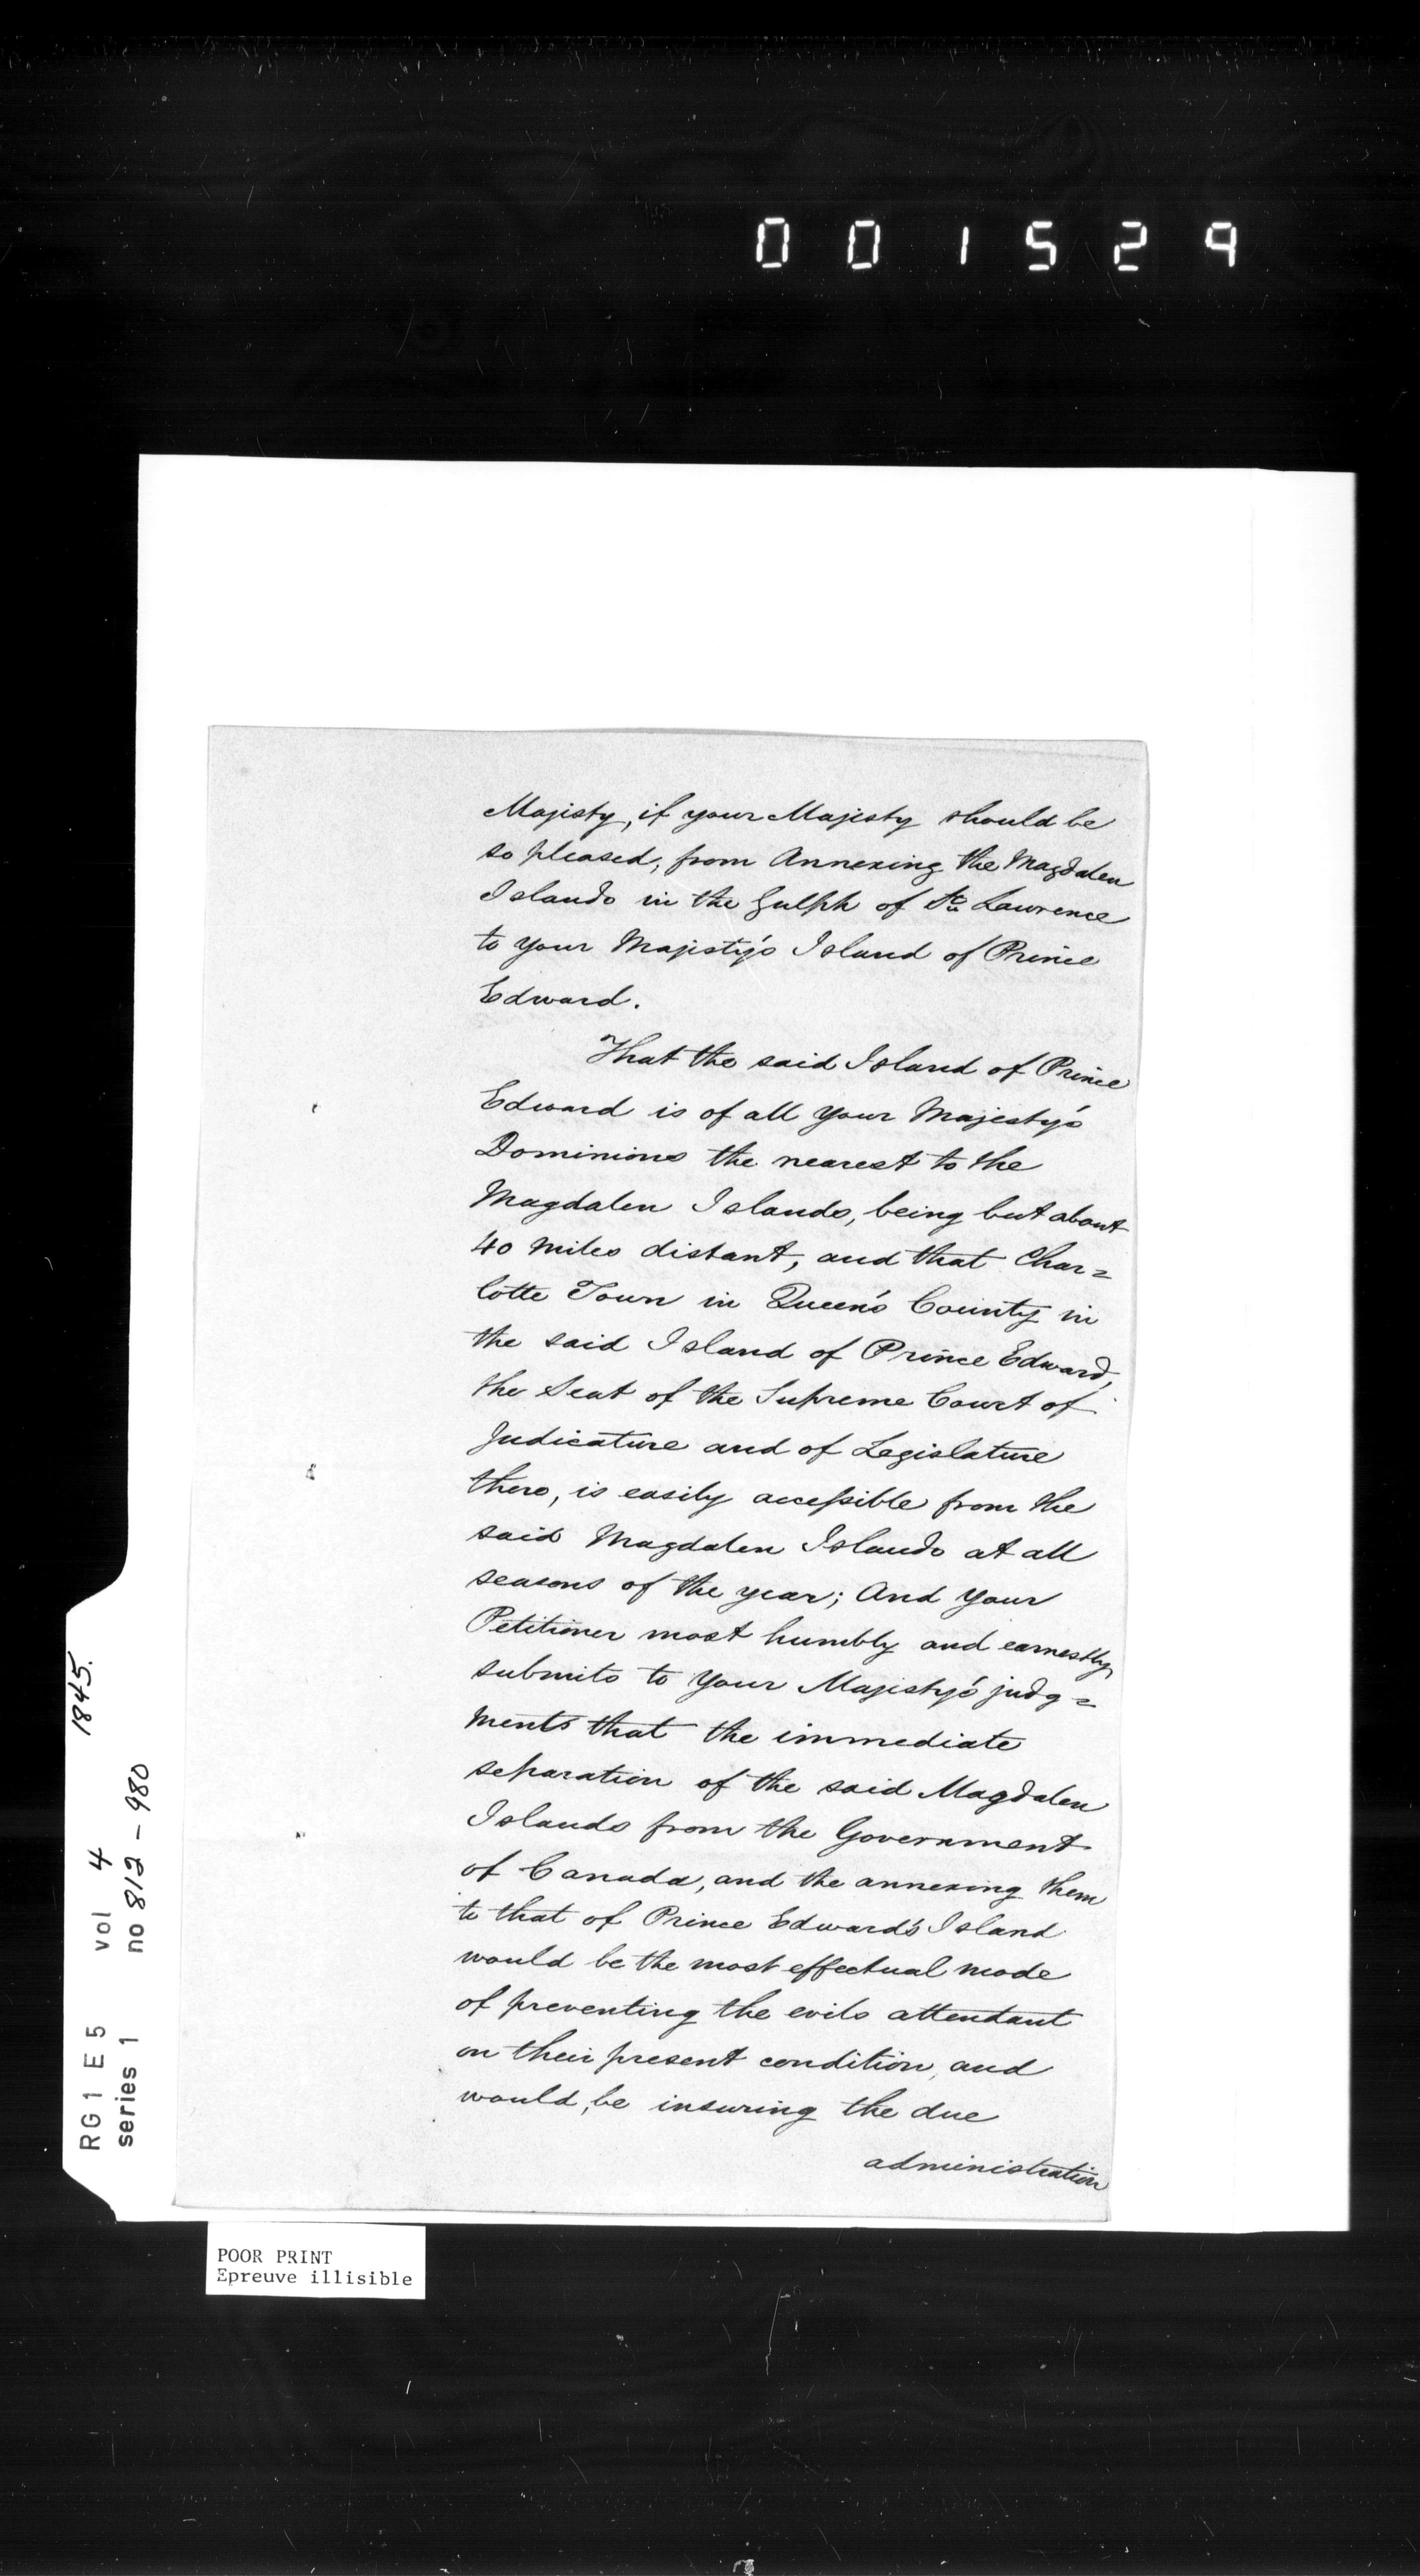 001529
Majisty, if your Majesty should be
so pleased, from Annexing the Magdalen
Islands in the Gulph of St. Lawrence
to your Majisty's Island of Prince
Edward.
That the said Island of Prince
Edward is of all your Majesty's
Dominions the nearest to the
Magdalen Islands, being but about
40 miles distant, and that Char=
lotte Town in Queen's County in
the said Island of Prince Edward,
the Seat of the Supreme Court of
Judicature and of Legislature
there, is easily accessible from the
said Magdalen Islands at all
seasons of the year; And your
Petitioner most humbly and earnestly
submits to your Majisty's judg=
ments that the immediate
separation of the said Magdalen
Islands from the Government
of Canada, and the annexing them
to that of Prince Edward's Island
would be the most effectual mode
of preventing the evils attendant
on their present condition, and
would, be insuring the due
administration
RG1 E5 vol 4 1845.
series 1 no 812-980
POOR PRINT
Epreuve illisible